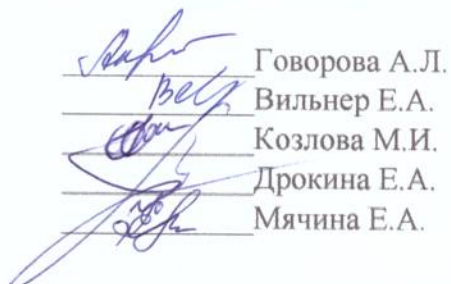 Говорова А.Л.
Вильнер Е.А.
Козлова М.И.
Дрокина Е.А.
Мячина Е.А.